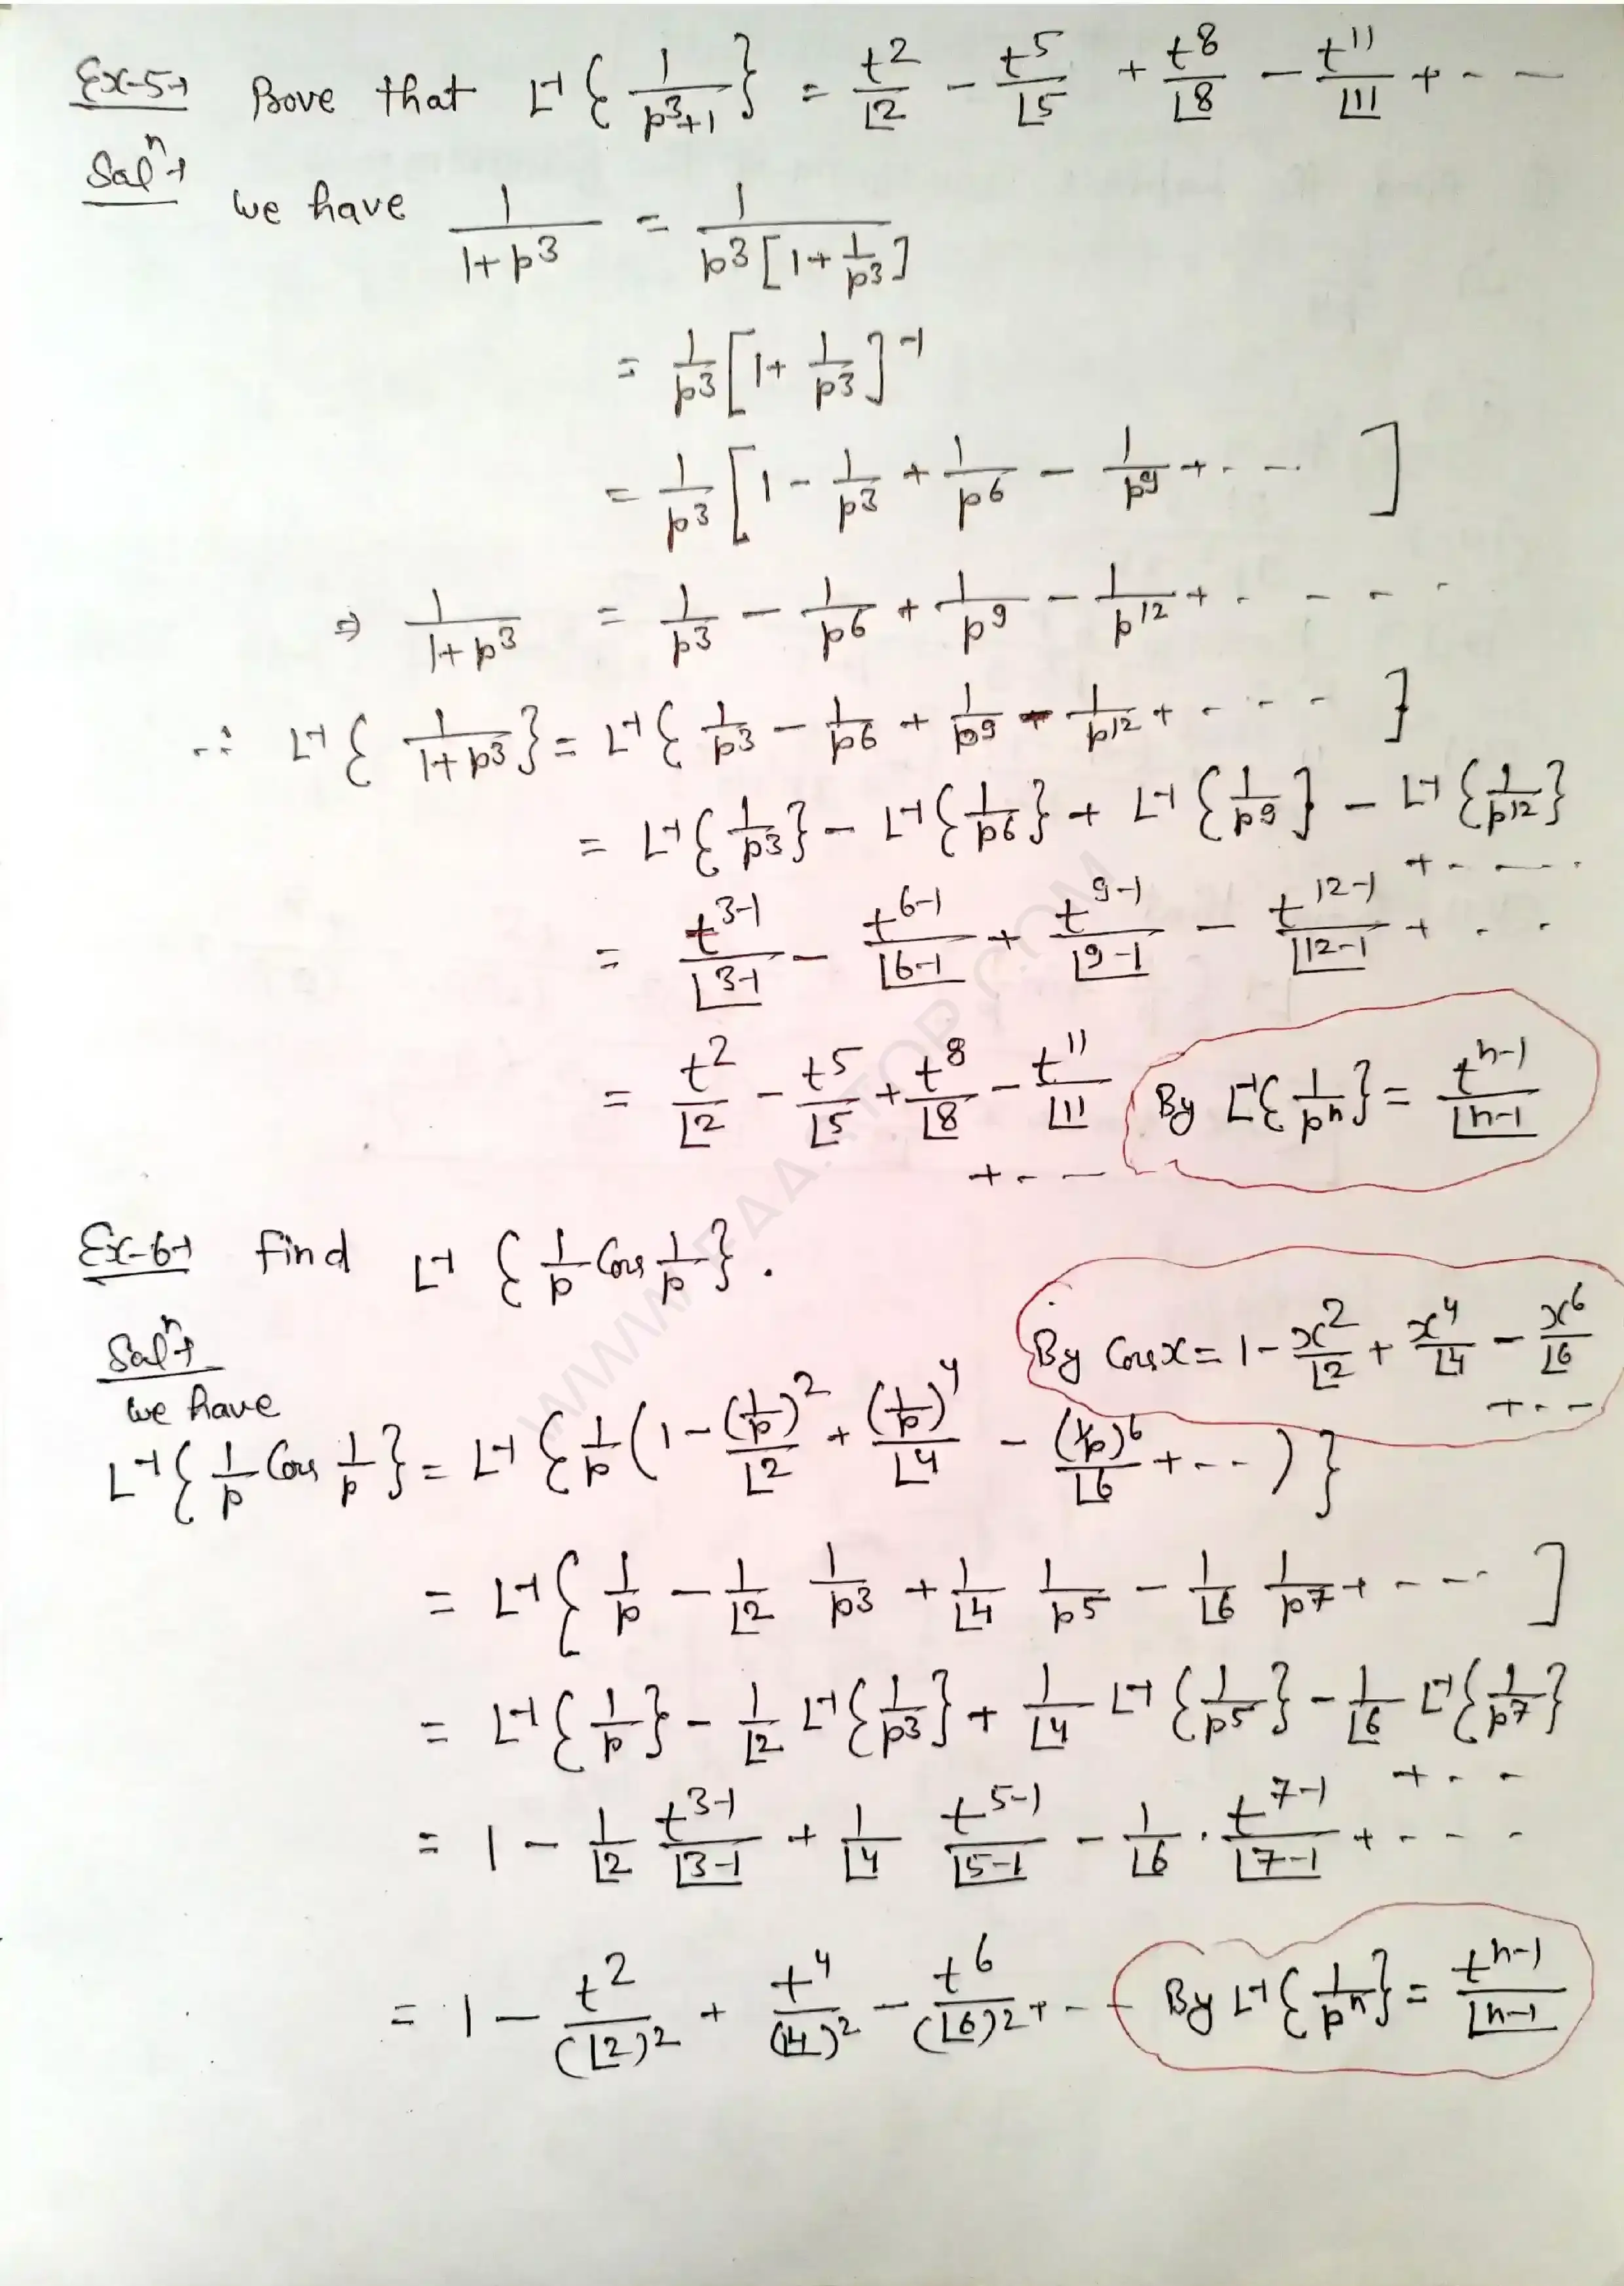 Ex-5→ Prove that L⁻¹{1/(p³+1)} = t²/⌊2 - t⁵/⌊5 + t⁸/⌊8 - t¹¹/⌊11 + - —
Solⁿ→
We have 1/(1+p³) = 1/(p³[1+1/p³])
= 1/p³ [1+ 1/p³]⁻¹
= 1/p³ [1 - 1/p³ + 1/p⁶ - 1/p⁹ + - - - ]
⇒ 1/(1+p³) = 1/p³ - 1/p⁶ + 1/p⁹ - 1/p¹² + - - - -
∴ L⁻¹{1/(1+p³)} = L⁻¹{1/p³ - 1/p⁶ + 1/p⁹ - 1/p¹² + - - - - }
= L⁻¹{1/p³} - L⁻¹{1/p⁶} + L⁻¹{1/p⁹} - L⁻¹{1/p¹²}
+ - — -
= t³⁻¹/⌊3-1 - t⁶⁻¹/⌊6-1 + t⁹⁻¹/⌊9-1 - t¹²⁻¹/⌊12-1 + - -
= t²/⌊2 - t⁵/⌊5 + t⁸/⌊8 - t¹¹/⌊11 By L⁻¹{1/pⁿ} = tⁿ⁻¹/⌊n-1
+ - —
Ex-6→ Find L⁻¹{1/p Cos 1/p}.
Solⁿ→ By Cosx = 1 - x²/⌊2 + x⁴/⌊4 - x⁶/⌊6
+ - -
We have
L⁻¹{1/p Cos 1/p} = L⁻¹{1/p(1 - (1/p)²/⌊2 + (1/p)⁴/⌊4 - (1/p)⁶/⌊6 + - - )}
= L⁻¹{1/p - 1/⌊2 1/p³ + 1/⌊4 1/p⁵ - 1/⌊6 1/p⁷ + - - - ]
= L⁻¹{1/p} - 1/⌊2 L⁻¹{1/p³} + 1/⌊4 L⁻¹{1/p⁵} - 1/⌊6 L⁻¹{1/p⁷}
+ - -
= 1 - 1/⌊2 t³⁻¹/⌊3-1 + 1/⌊4 t⁵⁻¹/⌊5-1 - 1/⌊6 . t⁷⁻¹/⌊7-1 + - - -
= 1 - t²/(⌊2)² + t⁴/(⌊4)² - t⁶/(⌊6)² + - - By L⁻¹{1/pⁿ} = tⁿ⁻¹/⌊n-1